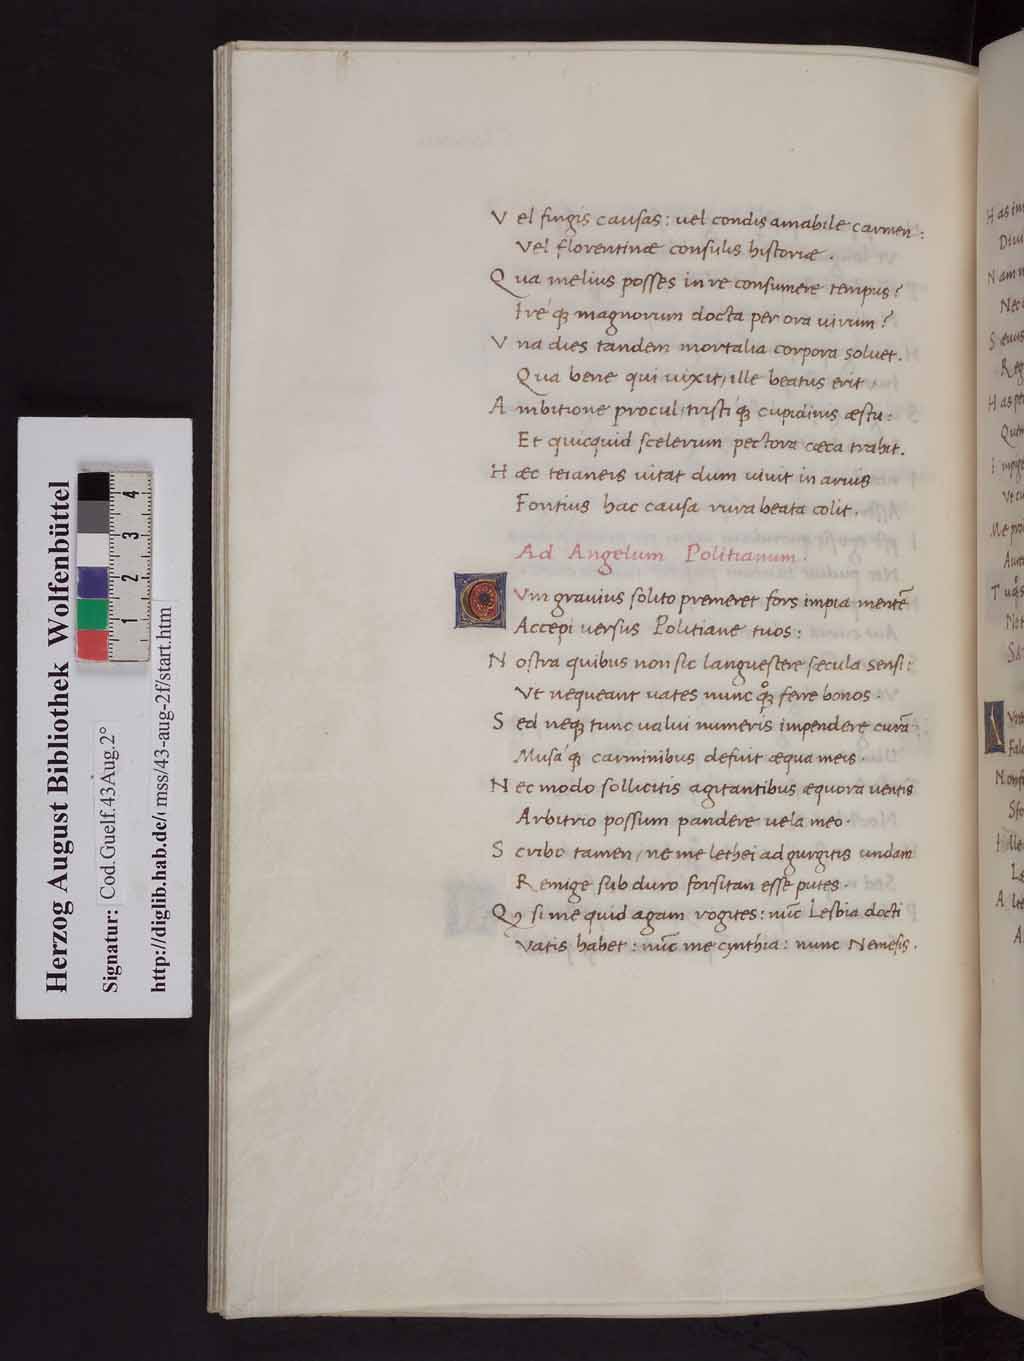 Herzog August Bibliothek Wolfenbüttel
Signatur: Cod.Guelf.43Aug.2°
http://diglib.hab.de/ mss/43-aug-2f/start.htm
4
3
2
1
V el fingis causas: uel condis amabile carmen:
Vel florentinæ consulis historiæ.
Q ua melius posses in re consumere tempus?
Ire' qꝫ magnorum docta per ora uirum?
V na dies tandem mortalia corpora soluet.
Qua bene qui uixit, ille beatus erit.
A mbitione procul, tristi' qꝫ cupidinis æstu:
Et quicquid scelerum pectora cæca trahit.
H æc uitat dum uiuit in aruis
Fontius hac causa rura beata colit.
Ad Angelum Politianum.
C Vm grauius solito premeret sors impia mentē
Accepi uersus Politiane tuos:
N ostra quibus non sic languescere sæcula sensi:
Vt nequeant uates nunc qͦꝫ ferre bonos.
S ed neqꝫ tunc ualui numeris impendere curā
Musa' qꝫ carminibus defuit æqua meis.
N ec modo sollicitis agitantibus æquora uentis
Arbitrio possum pandere uela meo.
S cribo tamen, ne me lethei ad gurgitis undam
Remige sub duro forsitan esse putes.
Qꝫ si me quid agam rogites: nūc Lesbia docti
Vatis habet: nūc me cynthia: nunc Nemesis.
H as im
Nam n
Nec
S eu
Reg
H as
V
Me pro
T
N
Sa
A Vre
Fal
N
I lle
A